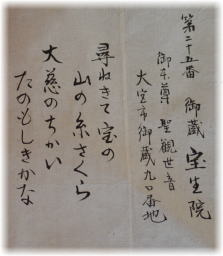 第二十五番　御蔵　宝生院
御本尊　聖観世音
大宮市御蔵九〇番地
尋ねきて宝の
山の糸さくら
大慈のちかい
たのもしきかな